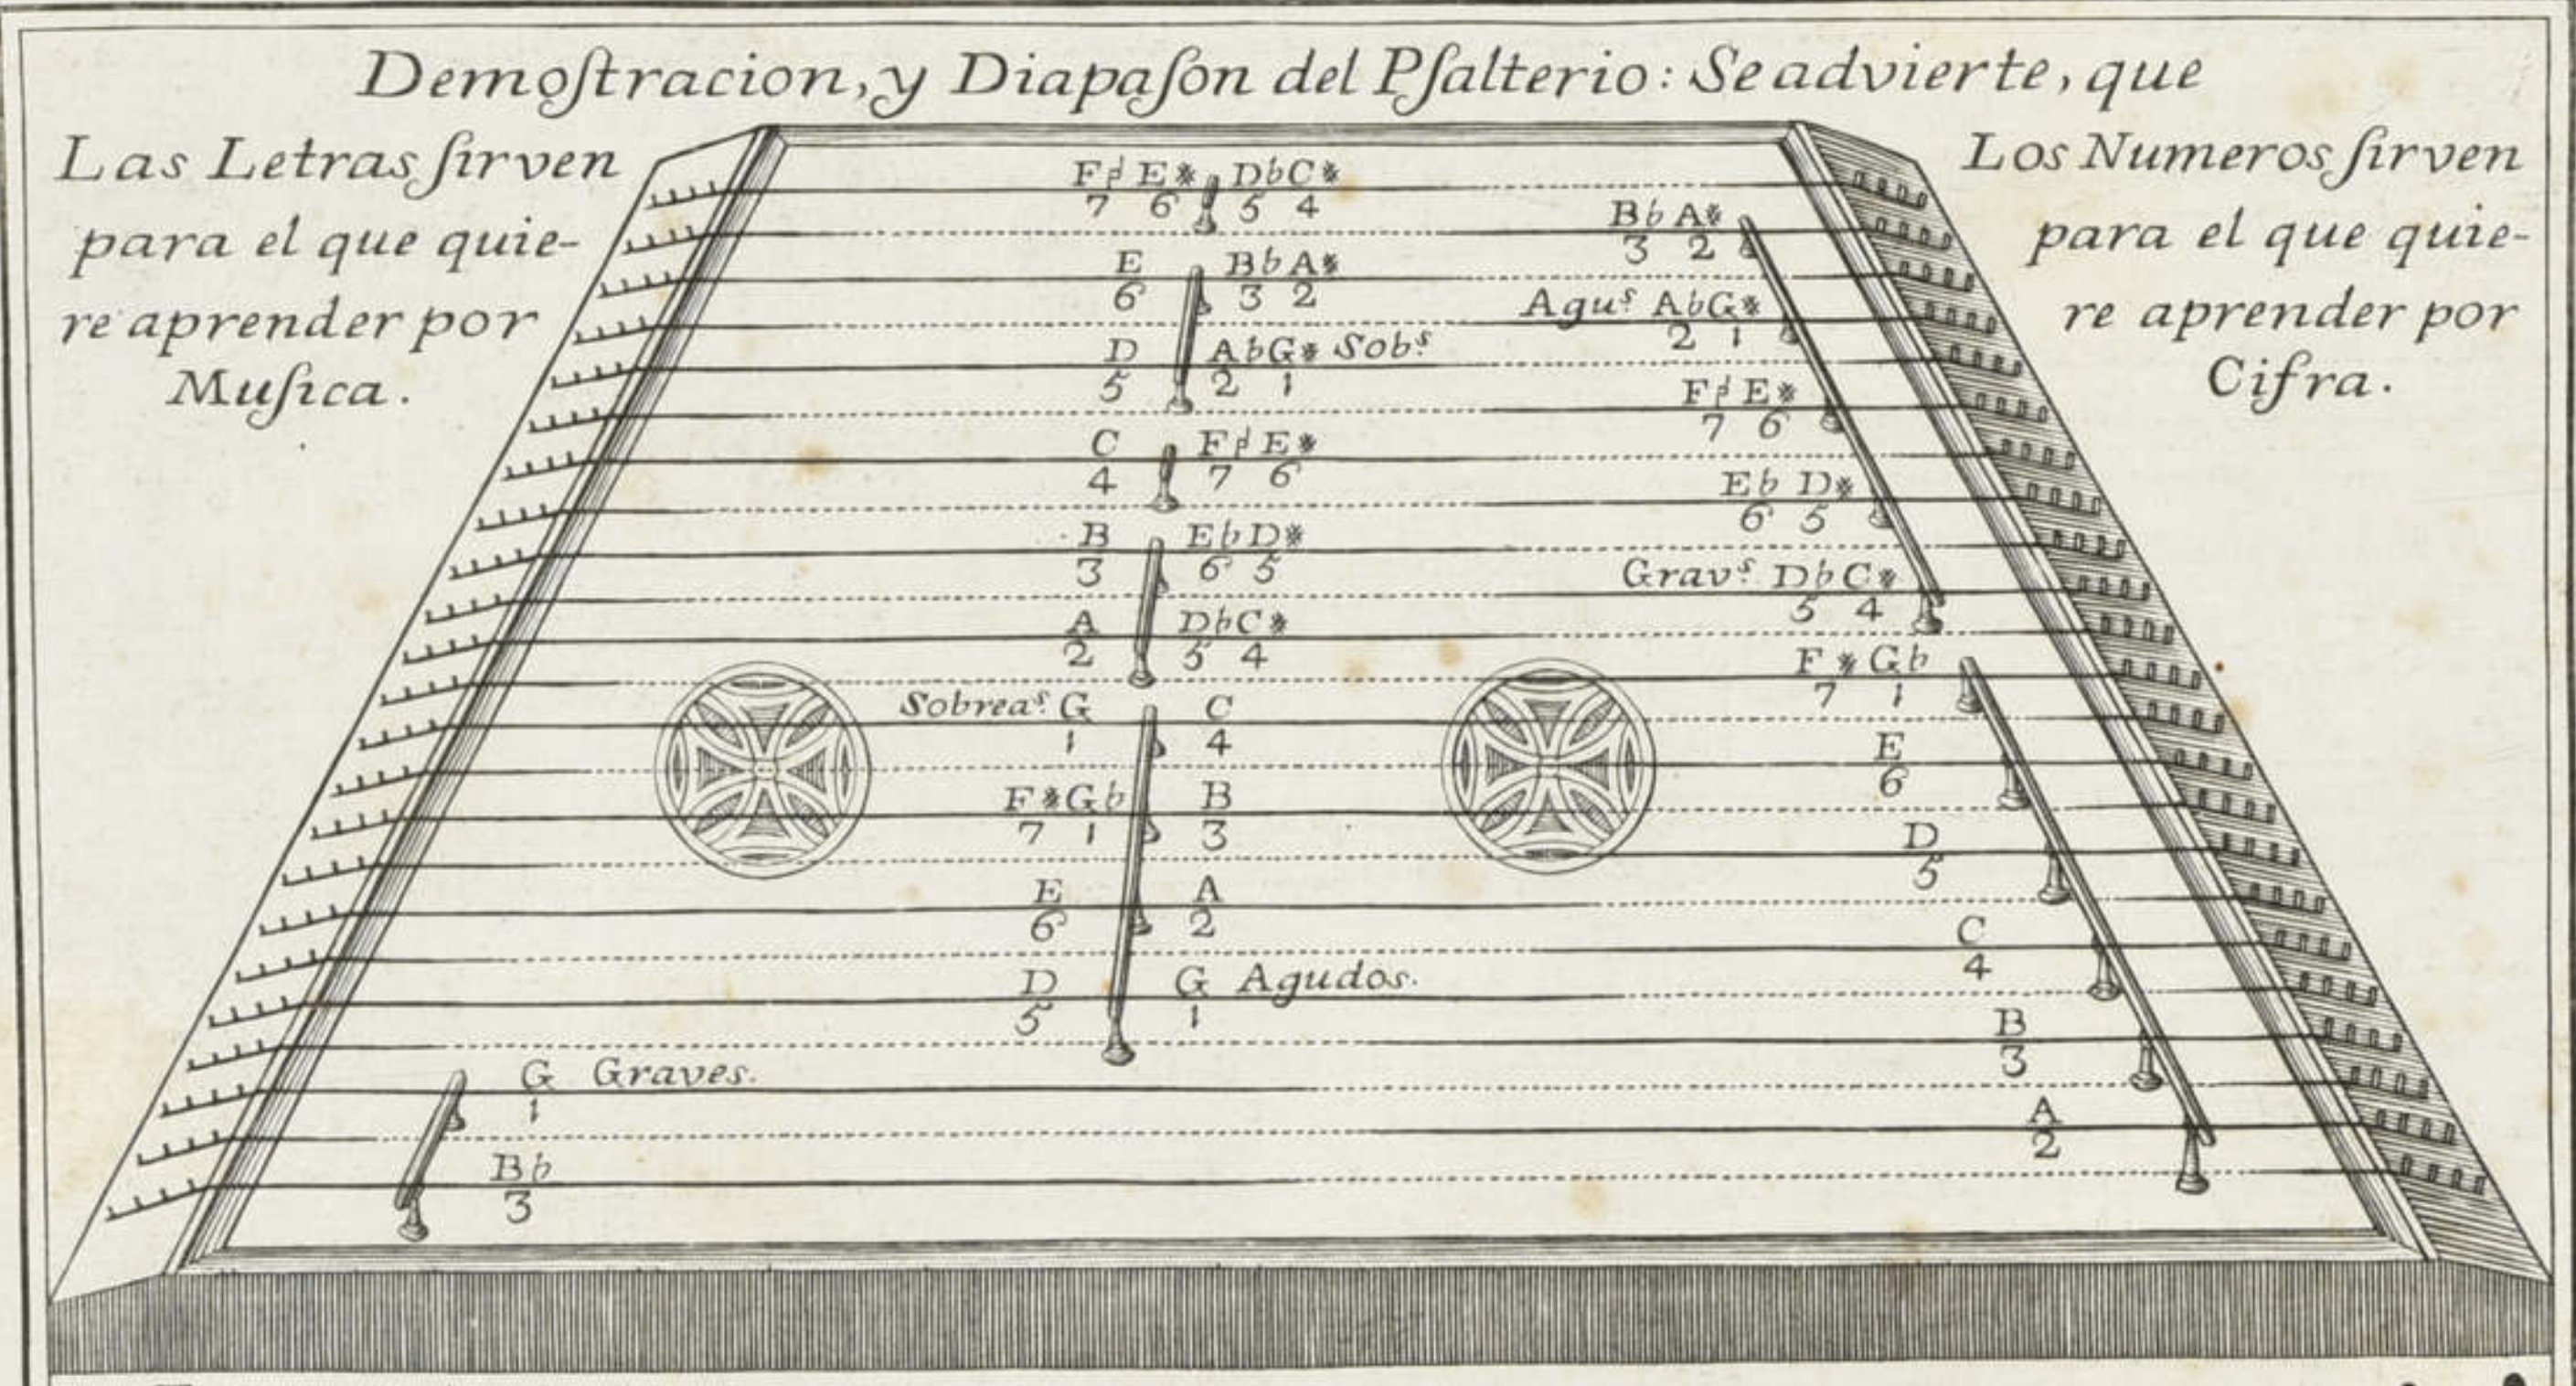 Demoſtracion, y Diapaſon del Pſalterio: Se advierte, que
Las Letras ſirven
para el que quie-
re aprender por
Muſica.
Los Numeros ſirven
para el que quie-
re aprender por
Cifra.
F♮ E※ D♭ C※
7 6 5 4
B♭ A※
3 2
E B♭ A※
6 3 2
Agus. A♭ G※
2 1
D A♭ G※ Sobs.
5 2 1
F♮ E※
7 6
C F♮ E※
4 7 6
E♭ D※
6 5
B E♭ D※
3 6 5
Gravs. D♭ C※
5 4
A D♭ C※
2 5 4
F※ G♭
7 1
Sobreas. G C
1 4
E
6
F※ G♭ B
7 1 3
D
5
E A
6 2
C
4
D G Agudos.
5 1
B
3
G Graves.
1
A
2
B♭
3